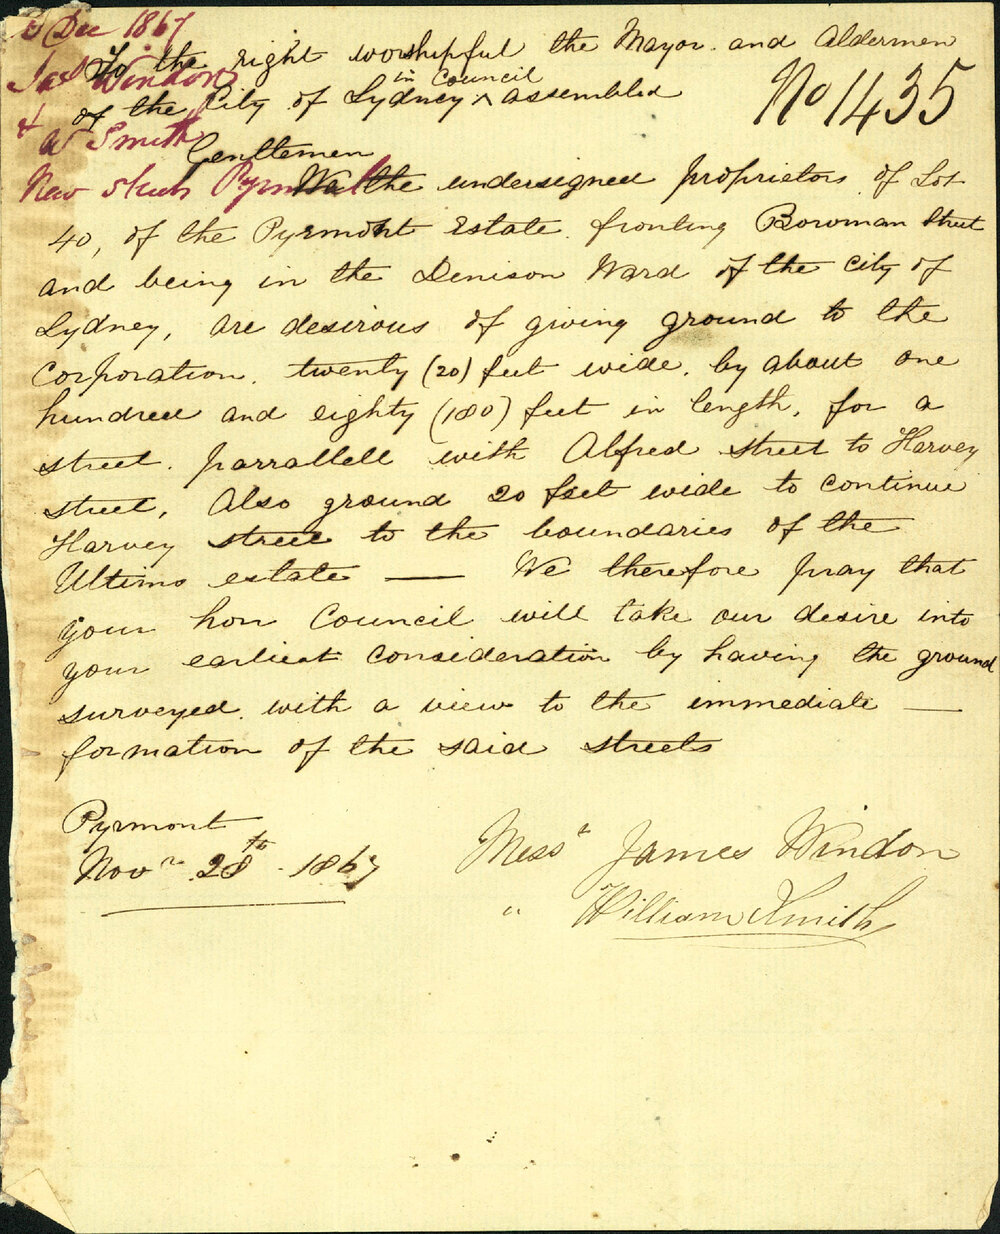 Dec 1867
Jas Windon
&
W Smith
New Street Pyrmont
No 1435
To the right worshipful the Mayor and Aldermen
of the City of Sydney in Council assembled
Gentlemen
We the undersigned proprietors of Lot
40, of the Pyrmont Estate fronting Bowman Street
and being in the Denison Ward of the City of
Sydney, are desirous of giving ground to the
Corporation. twenty (20) feet wide. by about one
hundred and eighty (180) feet in length, for a
street. parrallell with Alfred street to Harvey
street, Also ground 20 feet wide to continue
Harvey street to the boundaries of the
Ultimo estate — We therefore pray that
your hon Council will take our desire into
your earliest consideration by having the ground
surveyed with a view to the immediate —
formation of the said streets
Pyrmont
Novr 28th 1867
Messrs James Windon
" William Smith